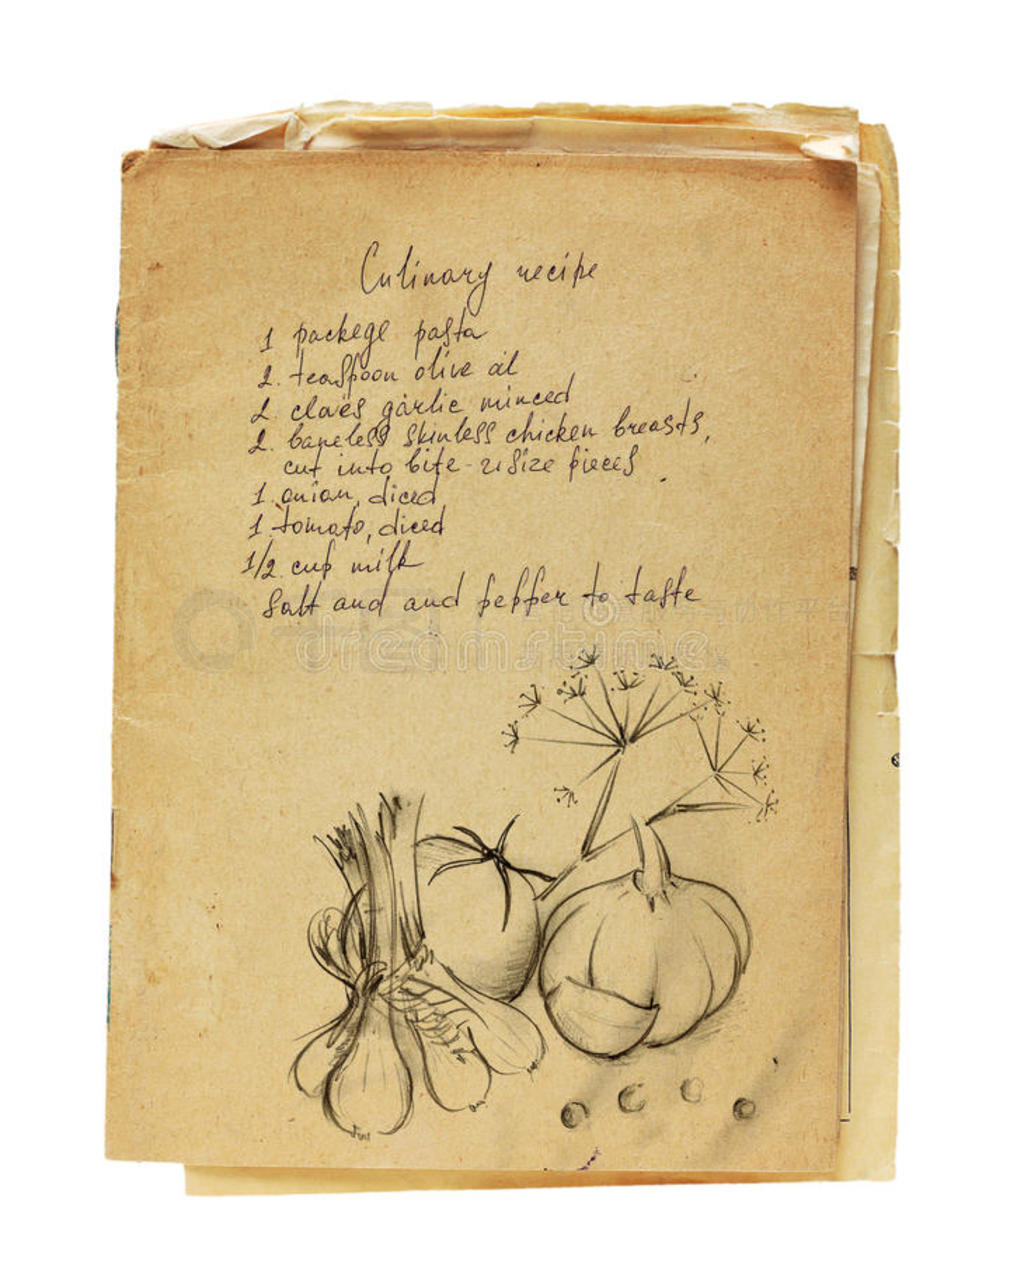 Culinary recipe
1 packege pasta
2. teaspoon olive oil
2. cloves garlic minced
2. boneless skinless chicken breasts,
cut into bite-size pieces
1. onion, diced
1. tomato, diced
1/2. cup milk
Salt and and pepper to taste
dreamstime